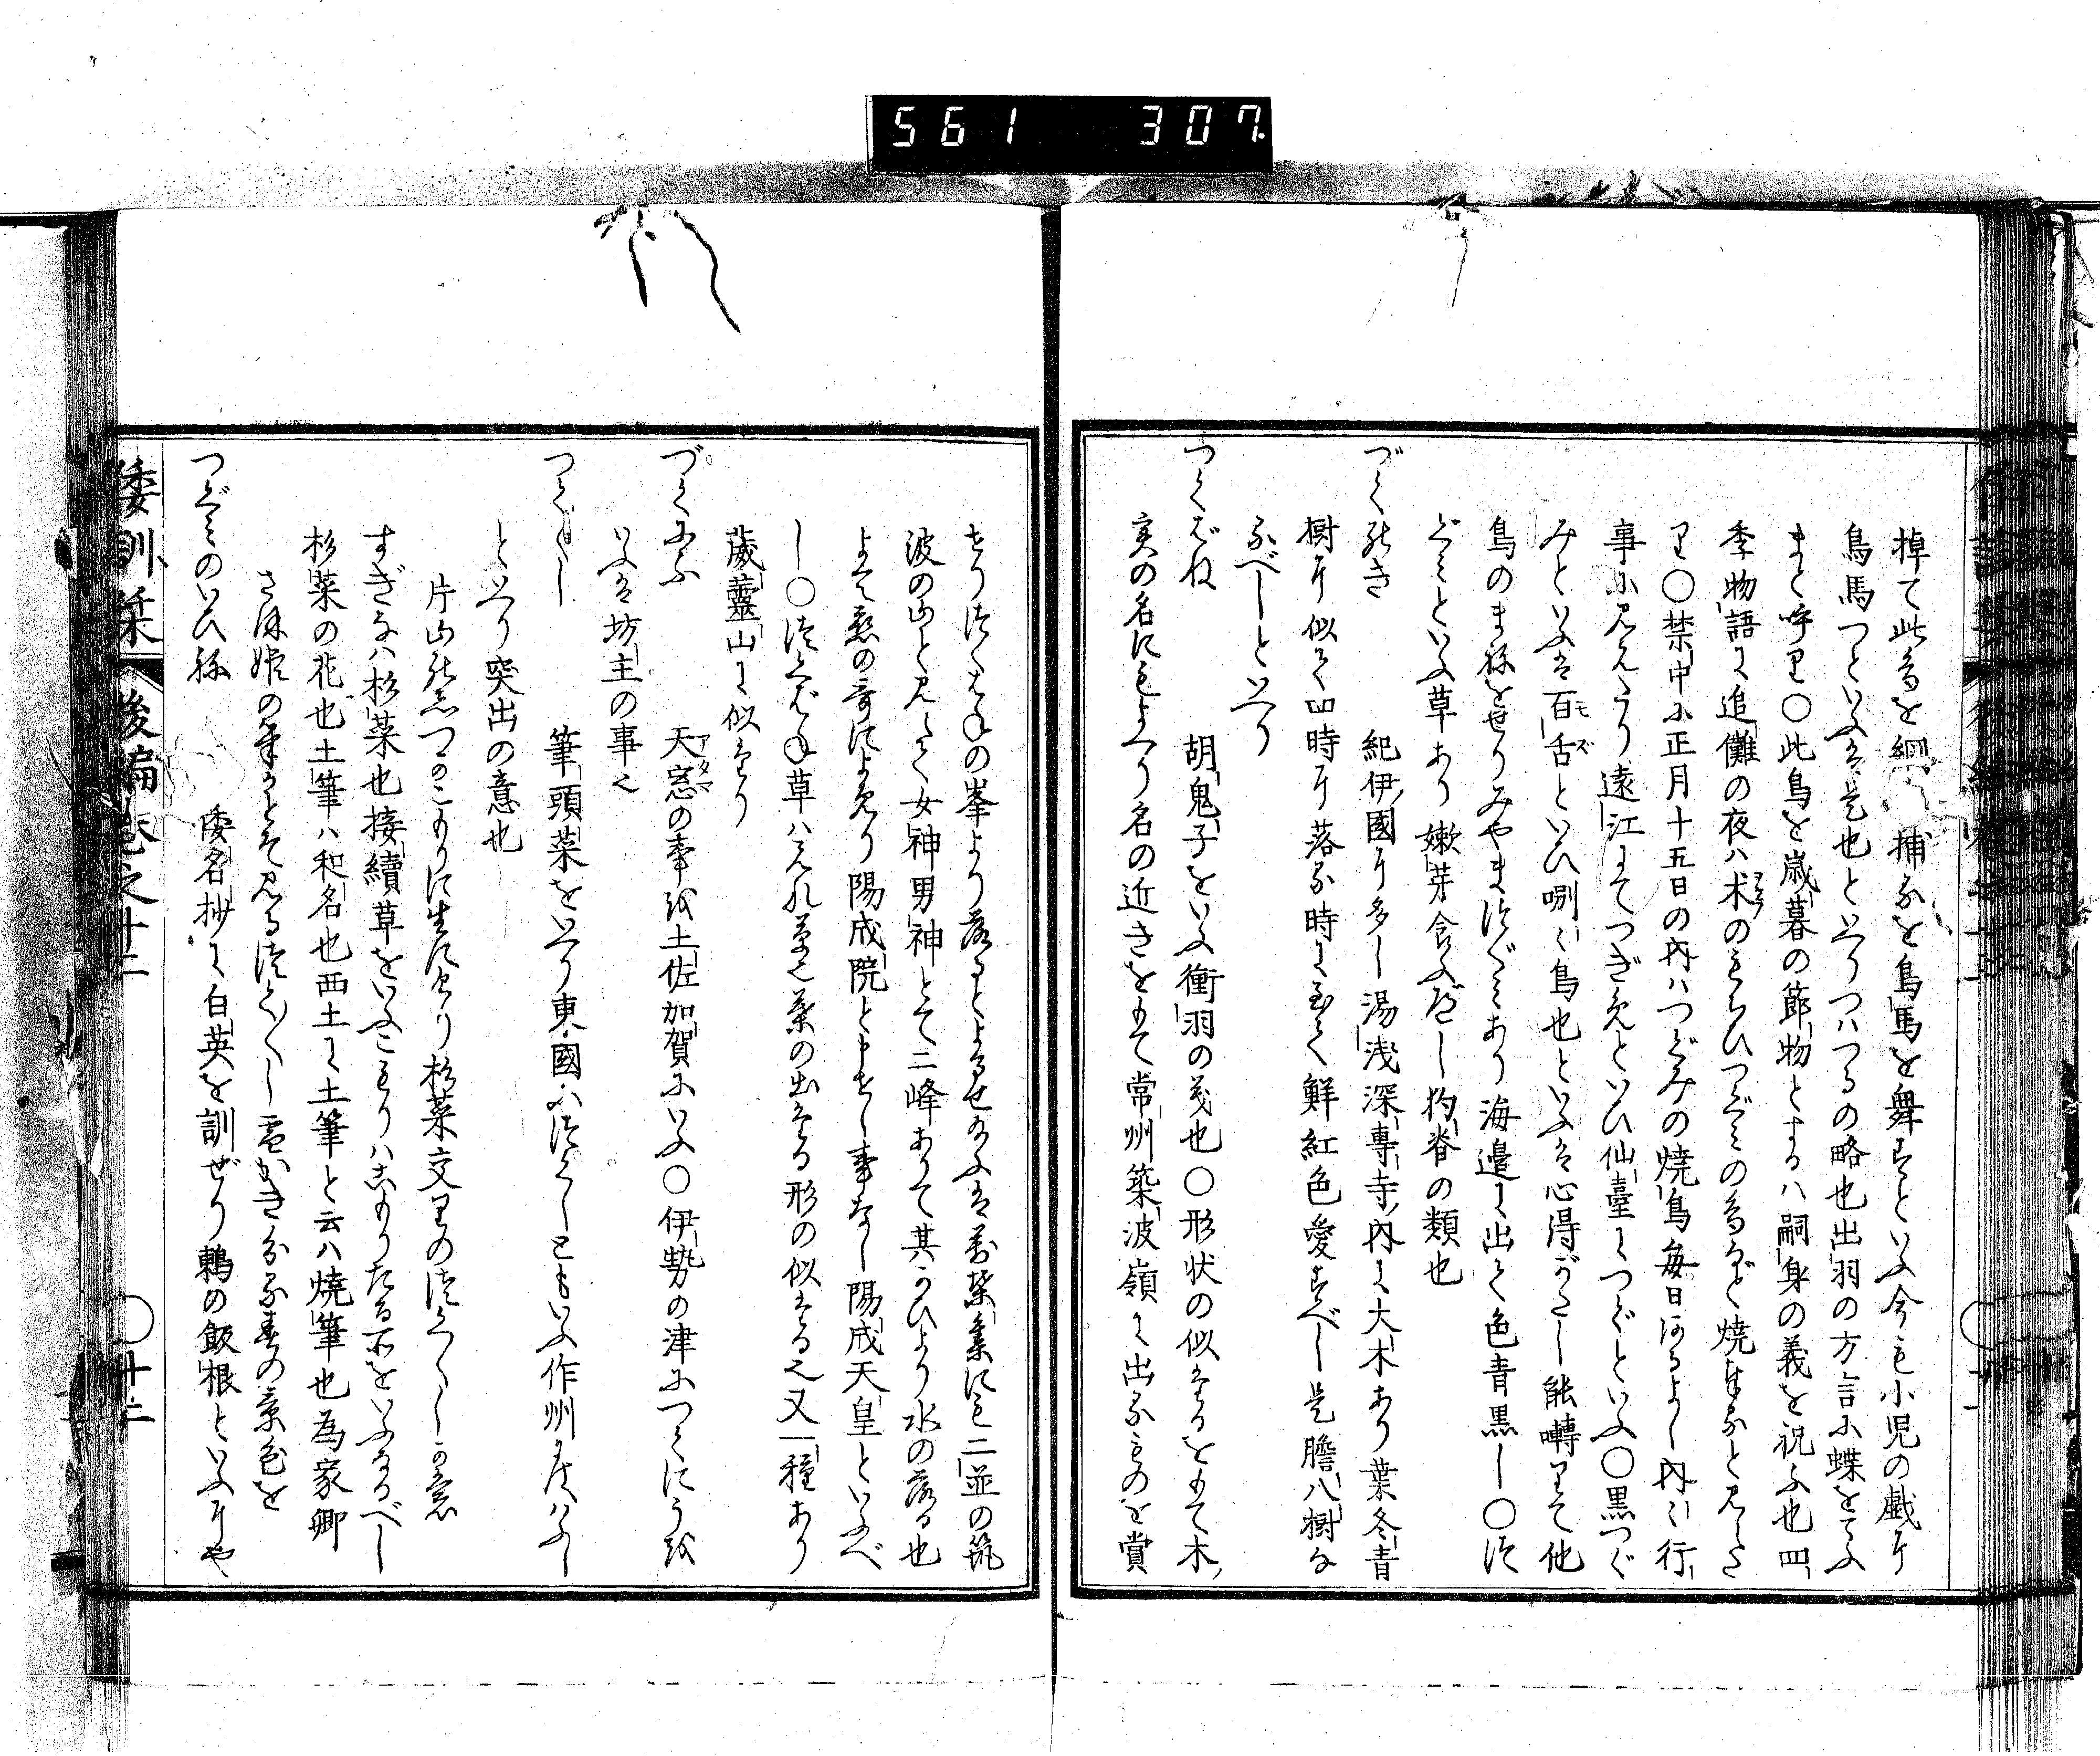 561 307
掉て此鳥を網 捕るを鳥馬を舞すといふ今も小児の戯に
鳥馬つといふは是也といへりつハつるの略也出羽の方言に蝶をてふ
まと呼り〇此鳥を歳暮の節物とするハ嗣身の義を祝ふ也四
季物語に追儺の夜ハ朮のもちひつぐみの鳥など焼はると見た
り〇禁中に正月十五日の内ハつぐみの焼鳥毎日有よし内々行
事に見えたり遠江にてつぎめといひ仙臺につぐといふ〇黒つぐ
みといふは百舌といひ哵々鳥也といふは心得がたし能囀りて他
鳥のまねをせりみやまつぐみあり海邉に出て色青黒し〇つ
ぐみといふ草あり嫩芽食ふべし狗脊の類也
づくのき 紀伊國に多し湯浅深専寺内に大木あり葉冬青
樹に似て四時に落る時に至て鮮紅色愛すべし是膽八樹な
るべしといへり
つくばね 胡鬼子をいふ衝羽の義也〇形状の似たるをもて木
実の名にもよへり名の近きをもて常州築波嶺に出るものを賞
せりつくはねの峯より落るとよませ給ふは万葉集にも二並の筑
波の山と見えて女神男神とて二峰ありて其あひより水の落る也
よて恋の哥によめり陽成院と申せし事なし陽成天皇といふべ
し〇つくばね草ハ之れ草也葉の出たる形の似たる也又一種あり
葳靈山に似たり
づくにふ 天窓の事を土佐加賀にいふ〇伊勢の津につくにうを
いふは坊主の事也
つくし 筆頭菜をいへり東國につくしともいふ作州にほうし
といへり突出の意也
片山のしつのこもりに生にけり杉菜交りのつく〱しの意
すぎなハ杉菜也接續草をいふこもりハこもりたる所をいふなるべし
杉菜の花也土筆ハ和名也西土に土筆と云ハ焼筆也為家卿
さほ姫の筆かとそ見るつく〱し雪かき分る春の景色を
つぐみのいひね 倭名抄に白英を訓ぜり鶫の飯根といふにや
倭訓栞 後編巻之十二 〇十二